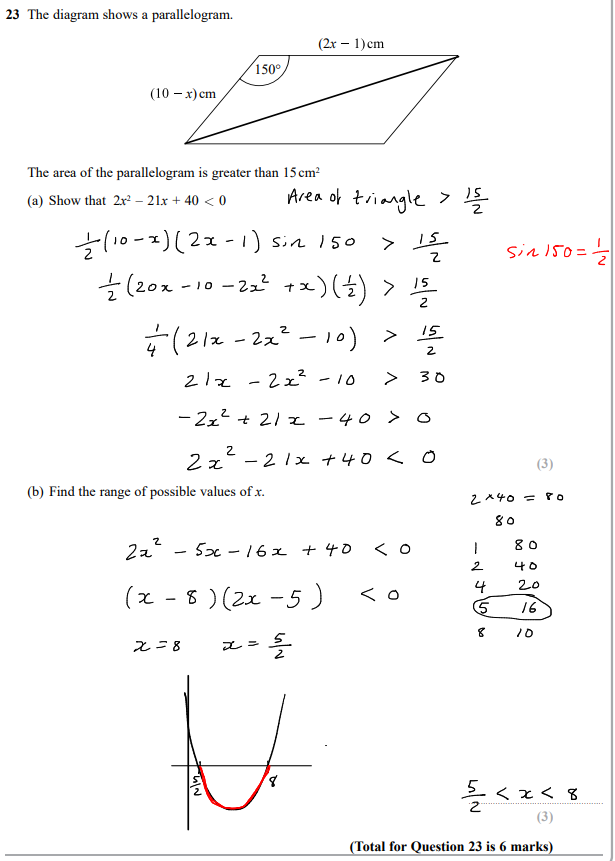 23 The diagram shows a parallelogram.
(2x − 1) cm
150°
(10 − x) cm
The area of the parallelogram is greater than 15 cm²
(a) Show that 2x² − 21x + 40 < 0
Area of triangle > 15/2
1/2 (10 − x)(2x − 1) sin 150 > 15/2
sin 150 = 1/2
1/2 (20x − 10 − 2x² + x)(1/2) > 15/2
1/4 (21x − 2x² − 10) > 15/2
21x − 2x² − 10 > 30
−2x² + 21x − 40 > 0
2x² − 21x + 40 < 0
(3)
(b) Find the range of possible values of x.
2 × 40 = 80
80
1 80
2 40
4 20
5 16
8 10
2x² − 5x − 16x + 40 < 0
(x − 8)(2x − 5) < 0
x = 8 x = 5/2
5/2 8
5/2 < x < 8
(3)
(Total for Question 23 is 6 marks)